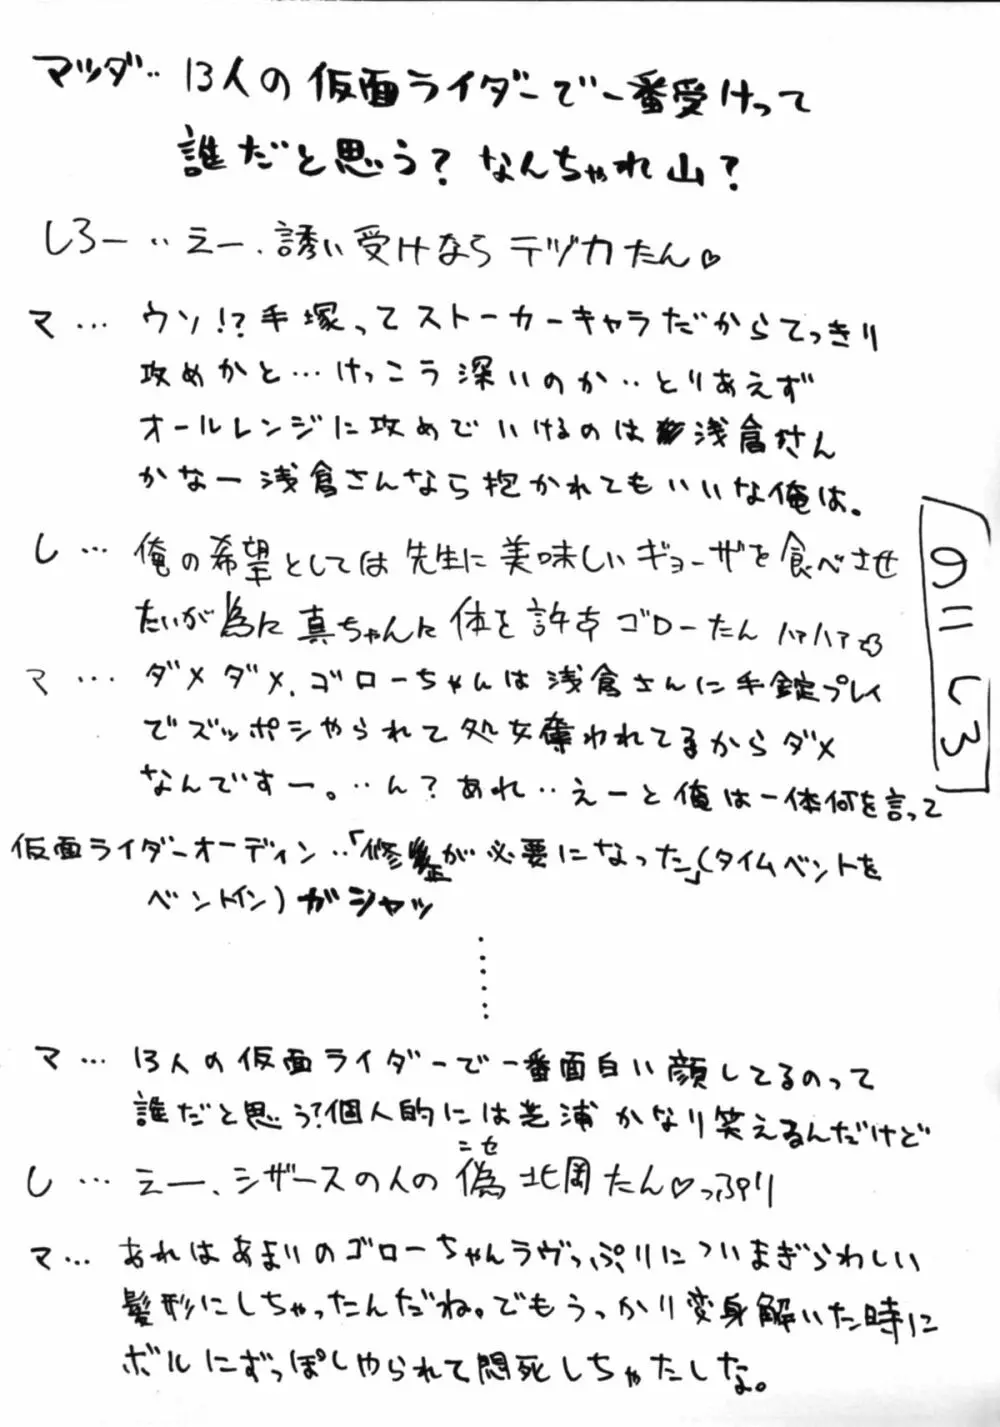 マツダ‥ 13人の仮面ライダーで一番受けって
誰だと思う？なんちゃれ山？
しろー‥えー、誘い受けなら テヅカたん♡
マ… ウソ!?手塚ってストーカーキャラだからてっきり
攻めかと…けっこう深いのか‥とりあえず
オールレンジに攻めでいけるのは浅倉さん
かなー浅倉さんなら抱かれてもいいな俺は。
し… 俺の希望としては先生に美味しいギョーザを食べさせ
たいが為に真ちゃんに体を許すゴローたん ハァハァ
マ… ダメダメ、ゴローちゃんは浅倉さんに手錠プレイ
でズッポシやられて処女奪われてるからダメ
なんですー。‥ん？あれ‥えーと俺は一体何を言って
仮面ライダーオーディン‥「修正が必要になった」(タイムベントを
ベントイン)ガシャッ
・・・・・・
マ… 13人の仮面ライダーで一番面白い顔してるのって
誰だと思う？個人的には芝浦かなり笑えるんだけど
し… えー、シザースの人の偽北岡たん♡っぷり
ニセ
マ… あれはあまりのゴローちゃんラヴっぷりについまぎらわしい
髪形にしちゃったんだね。でもうっかり変身解いた時に
ボルにずっぽしやられて悶死しちゃたしな。
のりしろ